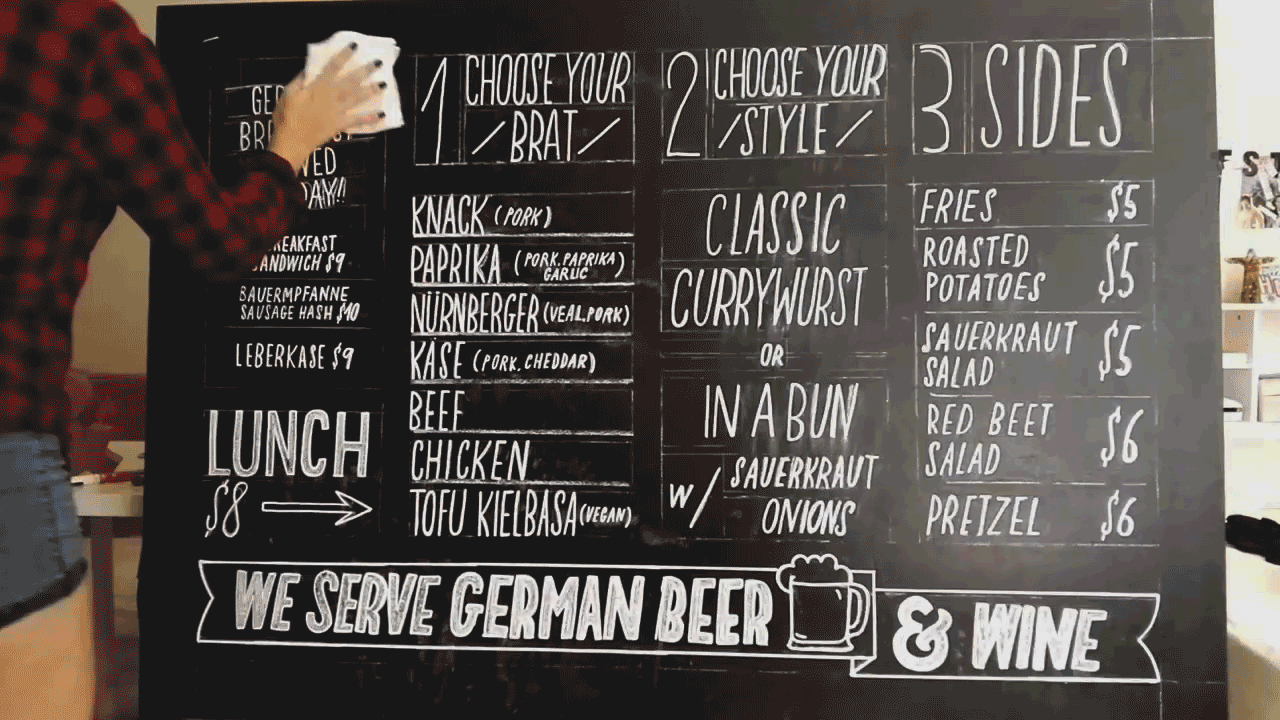 GER
BRE
VED
DAY!!
REAKFAST
SANDWICH $9
BAUERMPFANNE
SAUSAGE HASH $10
LEBERKASE $9
LUNCH
$8
1 CHOOSE YOUR
/BRAT/
KNACK (PORK)
PAPRIKA (PORK.PAPRIKA)
GARLIC
NÜRNBERGER (VEAL.PORK)
KÄSE (PORK.CHEDDAR)
BEEF
CHICKEN
TOFU KIELBASA (VEGAN)
2 CHOOSE YOUR
/STYLE/
CLASSIC
CURRYWURST
OR
IN A BUN
W/ SAUERKRAUT
ONIONS
3 SIDES
FRIES $5
ROASTED
POTATOES $5
SAUERKRAUT
SALAD $5
RED BEET
SALAD $6
PRETZEL $6
WE SERVE GERMAN BEER & WINE